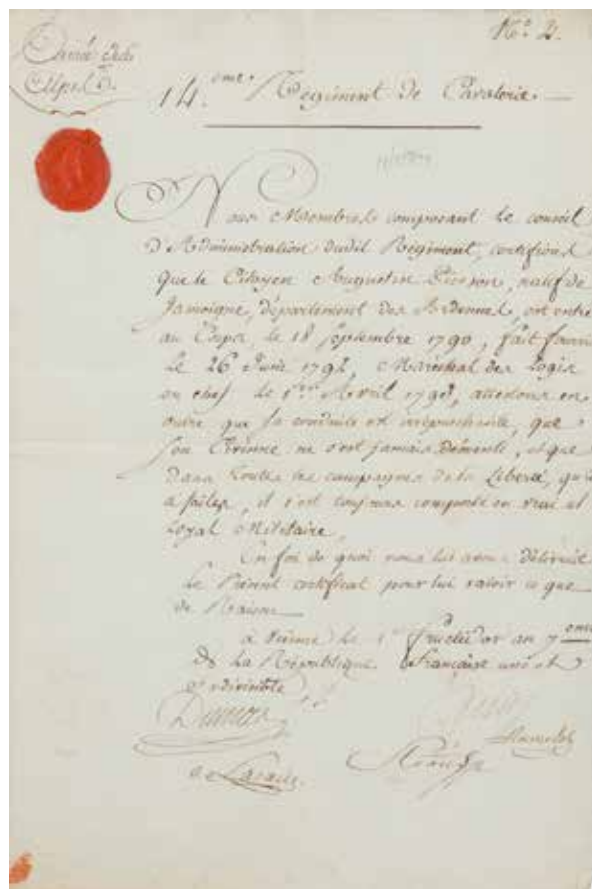 N.º 2.
Armée
14.eme Régiment de Cavalerie.
Nous Membres composant le conseil
D'Administration dudit Régiment, certifions
Que le Citoyen Augustin Pierson, natif de
Jamoigne, département des Ardennes, est entré
au Corps le 18 Septembre 1790, fait fourrier
Le 26 1792, Maréchal des Logis
en chef le 1.er Avril 1793, attestons en
outre que sa conduite est irréprochable, que
son Civisme ne s'est jamais démenti, et que
Dans toutes les campagnes de la Liberté, qu'il
a faites, il s'est toujours comporté en vrai et
Loyal Militaire.
En foi de quoi nous lui avons délivré
le Présent certificat pour lui valoir ce que
de Raison
à le 1.er Fructidor an 7.eme
De La République française une et
indivisible